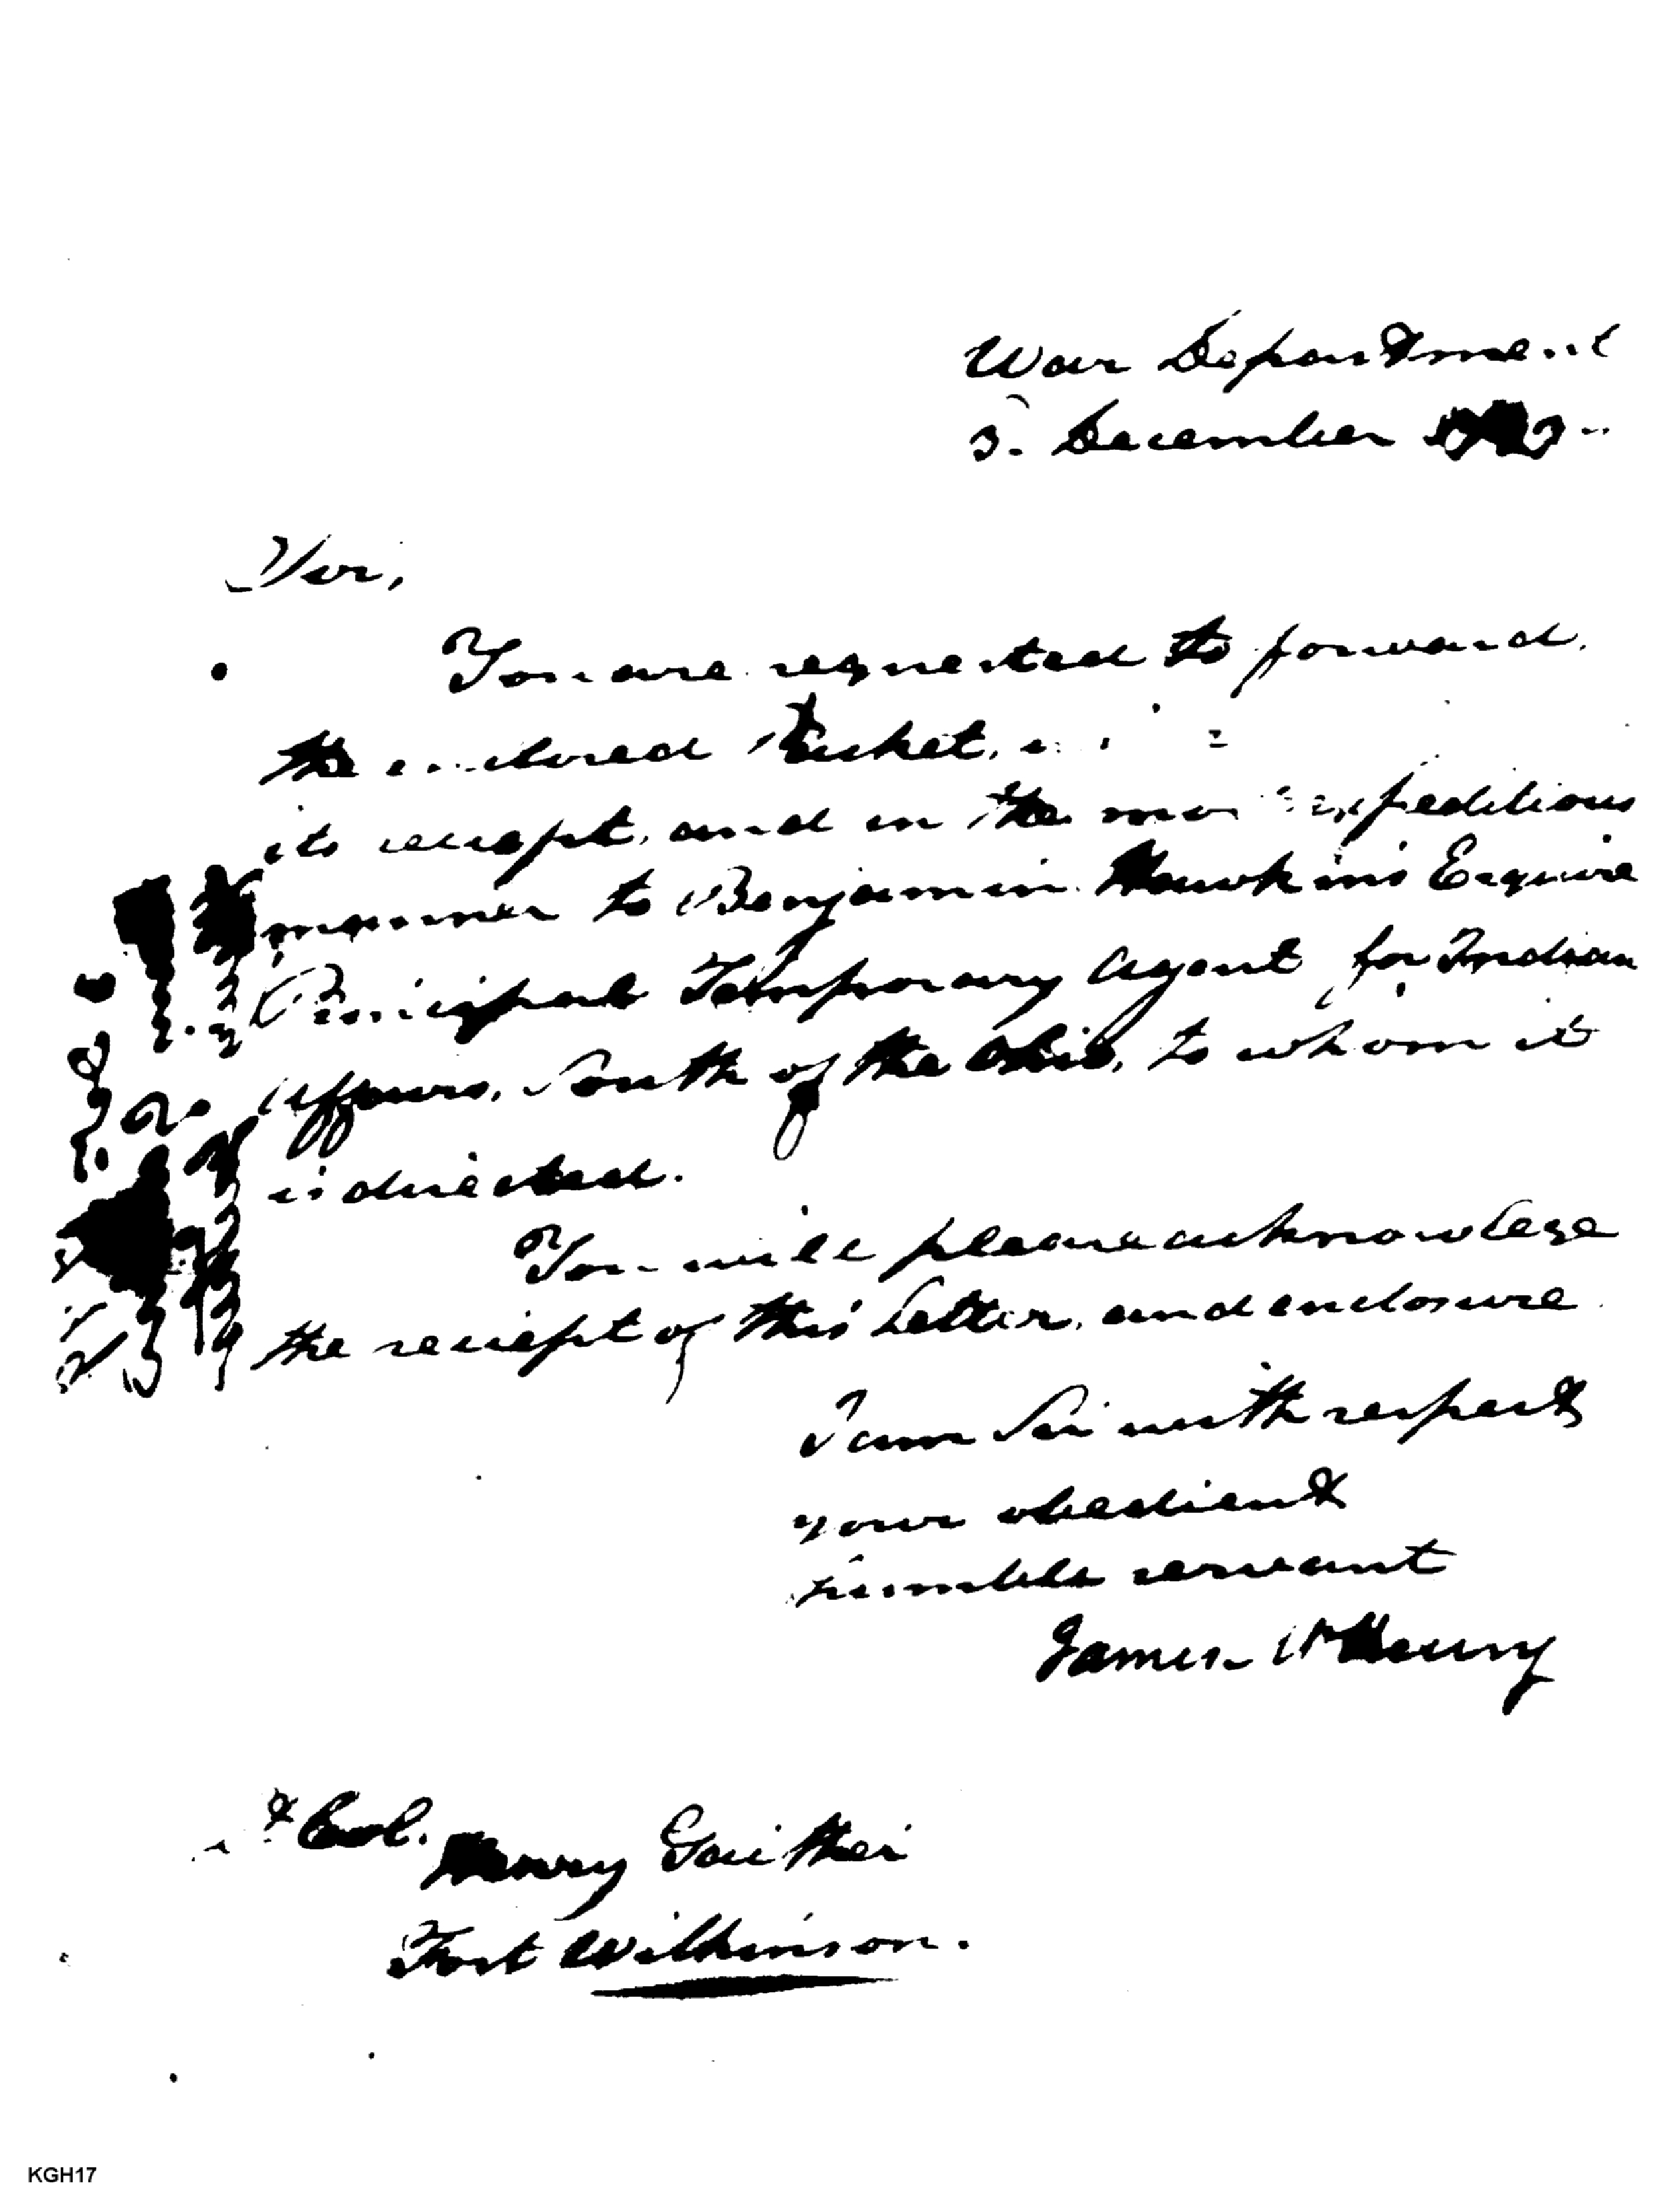 War Department
December
Sir,
You are requested to forward,
the enclosed Packet,
its receipt, and in the most expeditious
manner to Benjamin Hawkins Esquire
Principal Temporary Agent for Indian
Affairs, South of the Ohio, to whom it
is directed.
You will please acknowledge
the receipt of this letter, and enclosure.
I am Sir with respect
your obedient
humble servant
James McHenry
Col. Henry Gaither
Fort Wilkinson.
KGH17